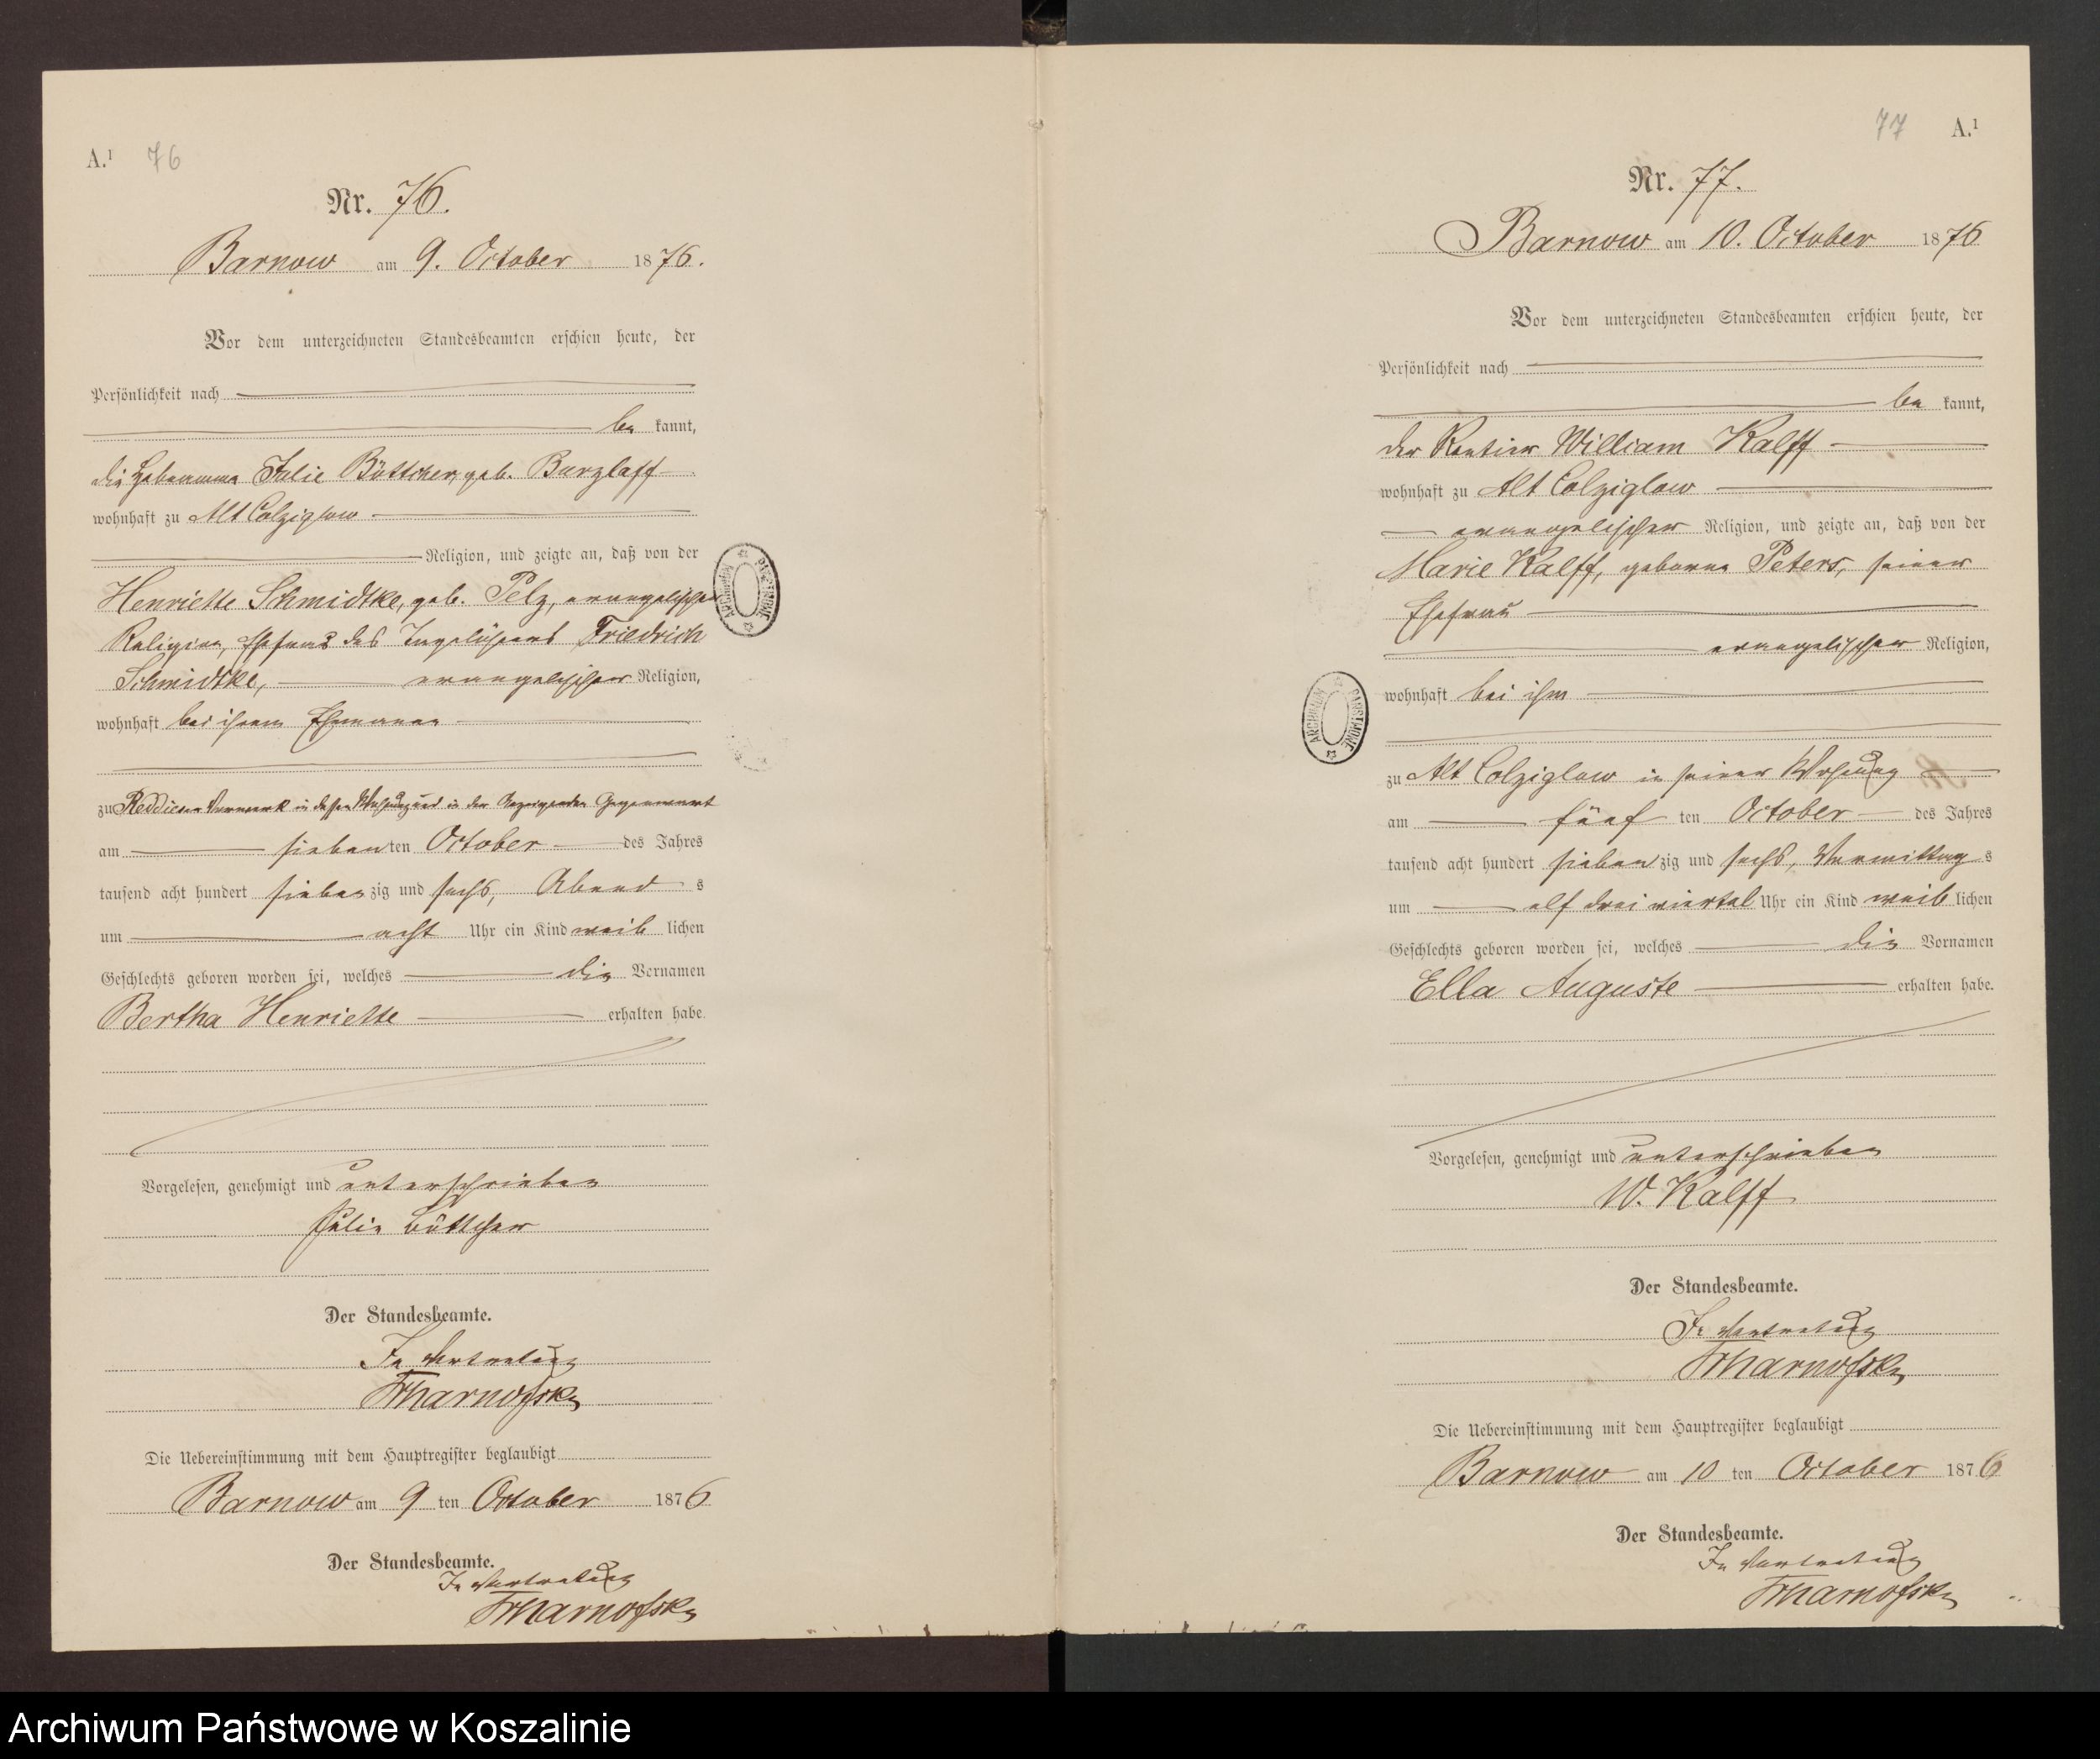 A.¹ 76
Nr. 76.
Barnow am 9. October 1876.
Vor dem unterzeichneten Standesbeamten erschien heute, der
Persönlichkeit nach
be kannt,
die Hebamme Julie Böttcher, geb. Burzlaff
wohnhaft zu Alt Colziglow
Religion, und zeigte an, daß von der
Henriette Schmidtke, geb. Pelz, evangelischer
Religion, Ehefrau des Tagelöhners Friedrich
Schmidtke, evangelischer Religion,
wohnhaft bei ihrem Ehemanne
zu Reddies in dessen Wohnung und in der Anzeigenden Gegenwart
am siebenten October des Jahres
tausend acht hundert siebenzig und sechs, Abends
um acht Uhr ein Kind weiblichen
Geschlechts geboren worden sei, welches die Vornamen
Bertha Henriette erhalten habe.
Vorgelesen, genehmigt und unterschrieben
Julie Böttcher
Der Standesbeamte.
In Vertretung
Die Uebereinstimmung mit dem Hauptregister beglaubigt
Barnow am 9 ten October 1876
Der Standesbeamte.
In Vertretung
77 A.¹
Nr. 77.
Barnow am 10. October 1876
Vor dem unterzeichneten Standesbeamten erschien heute, der
Persönlichkeit nach
be kannt,
der Rentier William Kalff
wohnhaft zu Alt Colziglow
evangelischer Religion, und zeigte an, daß von der
Marie Kalff, geborne Peters, seiner
Ehefrau
evangelischer Religion,
wohnhaft bei ihm
zu Alt Colziglow in seiner Wohnung
am fünf ten October des Jahres
tausend acht hundert siebenzig und sechs, Vormittags
um elf drei viertel Uhr ein Kind weiblichen
Geschlechts geboren worden sei, welches die Vornamen
Ella Auguste erhalten habe.
Vorgelesen, genehmigt und unterschrieben
W. Kalff
Der Standesbeamte.
In Vertretung
Die Uebereinstimmung mit dem Hauptregister beglaubigt
Barnow am 10 ten October 1876
Der Standesbeamte.
In Vertretung
Archiwum Państwowe w Koszalinie